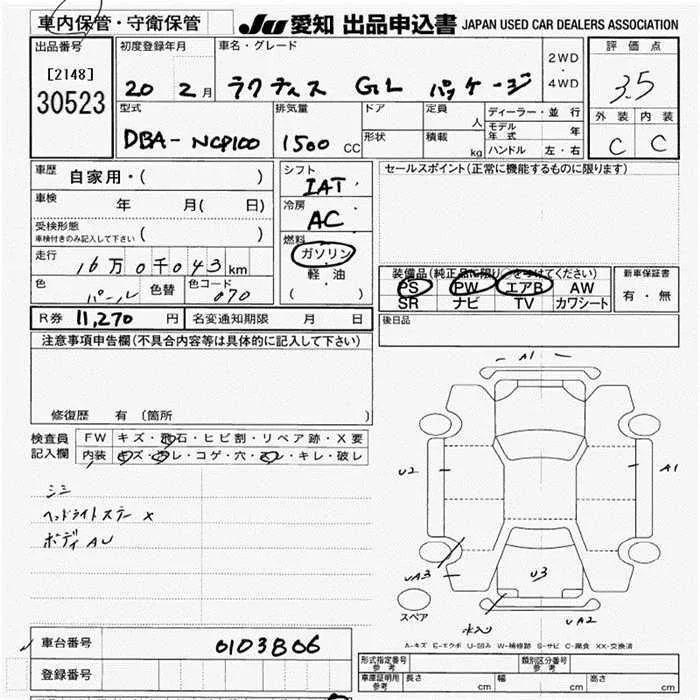 車内保管・守衛保管 JU 愛知 出品申込書 JAPAN USED CAR DEALERS ASSOCIATION
出品番号 初度登録年月 車名・グレード 2WD ・ 4WD 評価点
[2148] 20 2月 ラクティス GL パッケージ 3.5
30523
型式 排気量 ドア 定員 人 ディーラー・並行 外装 内装
DBA-NCP100 1500cc 形状 積載 kg モデル年式 年 C C
ハンドル 左・右
車歴 自家用・( ) シフト IAT セールスポイント(正常に機能するものに限ります)
車検 年 月( 日) 冷房 AC
受検形態 車検付きのみ記入して下さい ( )
燃料 ガソリン
走行 16万0千043km 軽油
( )
装備品(純正品に限り○をつけてください) 新車保証書
色 パール 色替 色コード 070 PS PW エアB AW 有・無
SR ナビ TV カワシート
R券 11,270円 名変通知期限 月 日 後日品
注意事項申告欄(不具合内容等は具体的に記入して下さい)
A1
修復歴 有 (箇所 )
検査員記入欄 FW キズ・飛石・ヒビ割・リペア跡・X要
内装 キズ・汚レ・コゲ・穴・スレ・キレ・破レ
U2 A1
シミ
ヘッドライトステー X
ボディ AU
UA3 U3
スペア UA2
A-キズ E-エクボ U-凹み W-補修跡 S-サビ C-腐食 XX-交換済
車台番号 0103806
登録番号
形式指定番号 参考 類別区分番号 参考
車庫証明用 参考 長さ cm 幅 cm 高さ cm